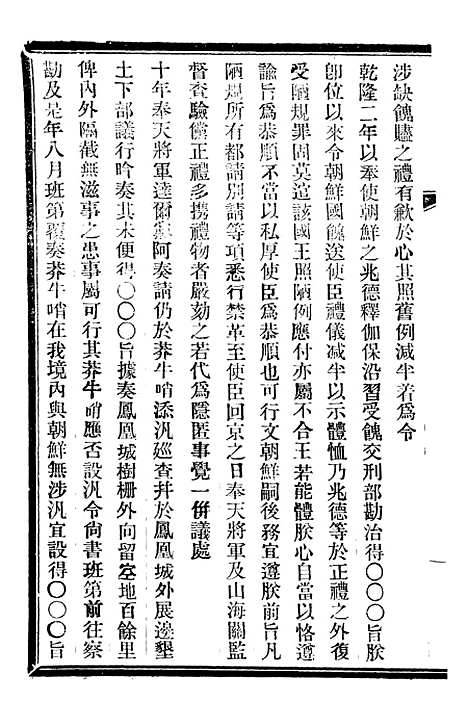 涉缺餽贐之禮有歉於心其照舊例減半著爲令
乾隆二年以奉使朝鮮之兆德釋伽保沿習受餽交刑部勘治得〇〇〇旨朕
卽位以來令朝鮮國餽送使臣禮儀減半以示體恤乃兆德等於正禮之外復
受陋規罪固莫逭該國王照陋例應付亦屬不合王若能體朕心自當以恪遵
諭旨爲恭順不當以私厚使臣爲恭順也可行文朝鮮嗣後務宜遵朕前旨凡
陋規所有都請別請等項悉行禁革至使臣回京之日奉天將軍及山海關監
督查驗儻正禮多携禮物者嚴劾之若代爲隱匿事覺一併議處
十年奉天將軍達爾黨阿奏請仍於莽牛哨添汛廵查幷於鳳凰城外展邊墾
土下部議行哈奏其未便得〇〇〇旨據奏鳳凰城樹柵外向留空地百餘里
俾內外隔截無滋事之患事屬可行其莽牛哨應否設汛令尙書班第前往察
勘及是年八月班第覆奏莽牛哨在我境內與朝鮮無涉汛宜設得〇〇〇旨